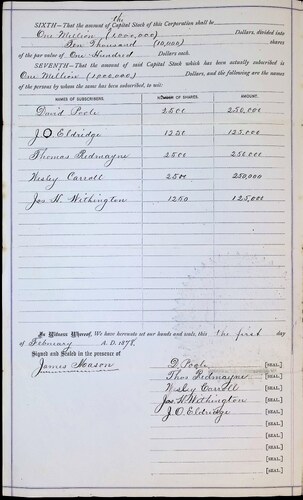 the
SIXTH—That the amount of Capital Stock of this Corporation shall be
One Million (1,000,000) Dollars, divided into
Ten Thousand (10,000) shares
of the par value of One Hundred Dollars each.
SEVENTH—That the amount of said Capital Stock which has been actually subscribed is
One Million (1,000,000) Dollars, and the following are the names
of the persons by whom the same has been subscribed, to wit:
NAMES OF SUBSCRIBERS. NUMBER OF SHARES. AMOUNT.
David Poole 2500 250,000
J.O. Eldridge 1250 125,000
Thomas Redmayne 2500 250,000
Wesley Carroll 2500 250,000
Jos N. Withington 1250 125,000
In Witness Whereof, We have hereunto set our hands and seals, this the first day
of February A. D. 1878.
Signed and Sealed in the presence of
James Mason
D. Poole [SEAL.]
Thos Redmayne [SEAL.]
Wesley Carroll [SEAL.]
Jos. N. Withington [SEAL.]
J. O. Eldridge [SEAL.]
[SEAL.]
[SEAL.]
[SEAL.]
[SEAL.]
[SEAL.]